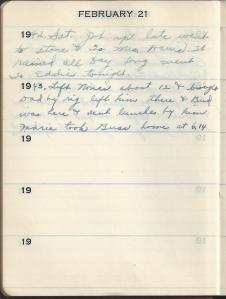 FEBRUARY 21
19 42. Sat. Got up late went
to store & to Mrs. Harris. It
rained all Day long went
to Eddies tonight.
1943. Left Nones about 12 & brought
dad by rig left him there & Bud
was here & sent lunches by him
Marie took Buss home at 6.14
19
19
19